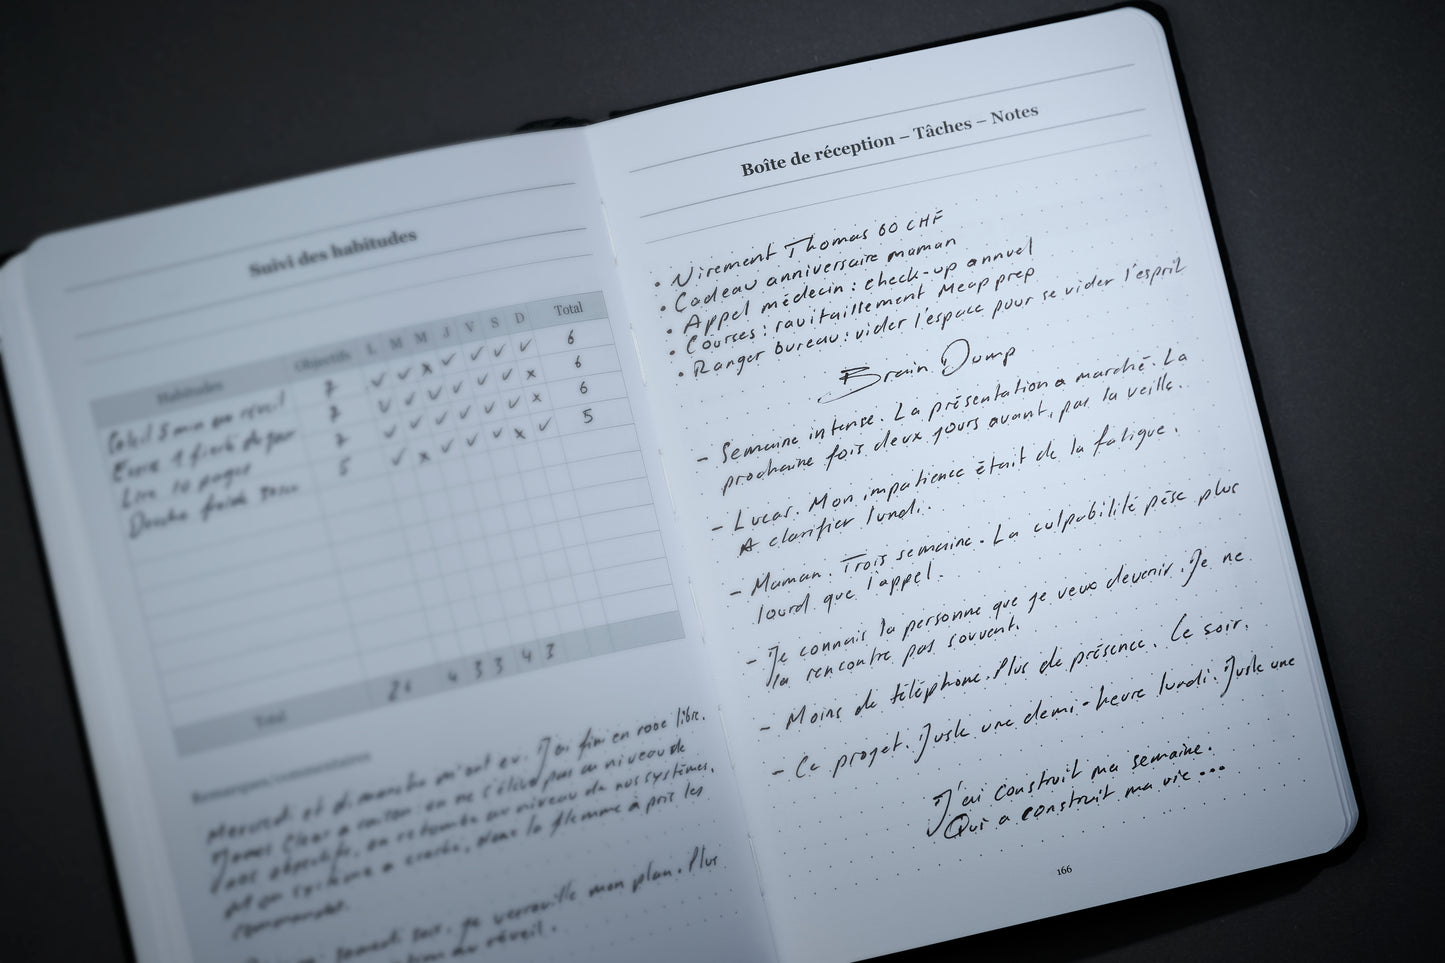 Suivi des habitudes
Habitudes Objectifs L M M J V S D Total
Soleil 5 min au réveil 7 ✓ ✓ x ✓ ✓ ✓ ✓ 6
Ecrire 1 fierté du jour 7 ✓ ✓ ✓ ✓ ✓ ✓ x 6
Lire 10 pages 7 ✓ ✓ ✓ ✓ ✓ ✓ x 6
Douche froide 5 ✓ x ✓ ✓ ✓ x ✓ 5
Total 26 4 3 3 4 3
Remarques/commentaires
Mercredi et dimanche m'ont eu. J'ai fini en roue libre.
James Clear a raison: on ne s'élève pas au niveau de
nos objectifs, on retombe au niveau de nos systèmes.
système a craché, alors la flemme a pris les
commandes.
samedi soir, je verrouille mon plan. Plus
au réveil.
Boîte de réception – Tâches – Notes
• Virement Thomas 60 CHF
• Cadeau anniversaire maman
• Appel médecin : check-up annuel
• Courses : ravitaillement Meap prep
• Ranger bureau : vider l'espace pour se vider l'esprit
Brain Dump
– Semaine intense. La présentation a marché. La
prochaine fois deux jours avant, pas la veille.
– Lucas. Mon impatience était de la fatigue.
A clarifier lundi.
– Maman. Trois semaine. La culpabilité pèse plus
lourd que l'appel.
– Je connais la personne que je veux devenir. Je ne
la rencontre pas souvent.
– Moins de téléphone. Plus de présence. Ce soir.
– Ce projet. Juste une demi-heure lundi. Juste une
J'ai construit ma semaine.
Qui a construit ma vie...
166